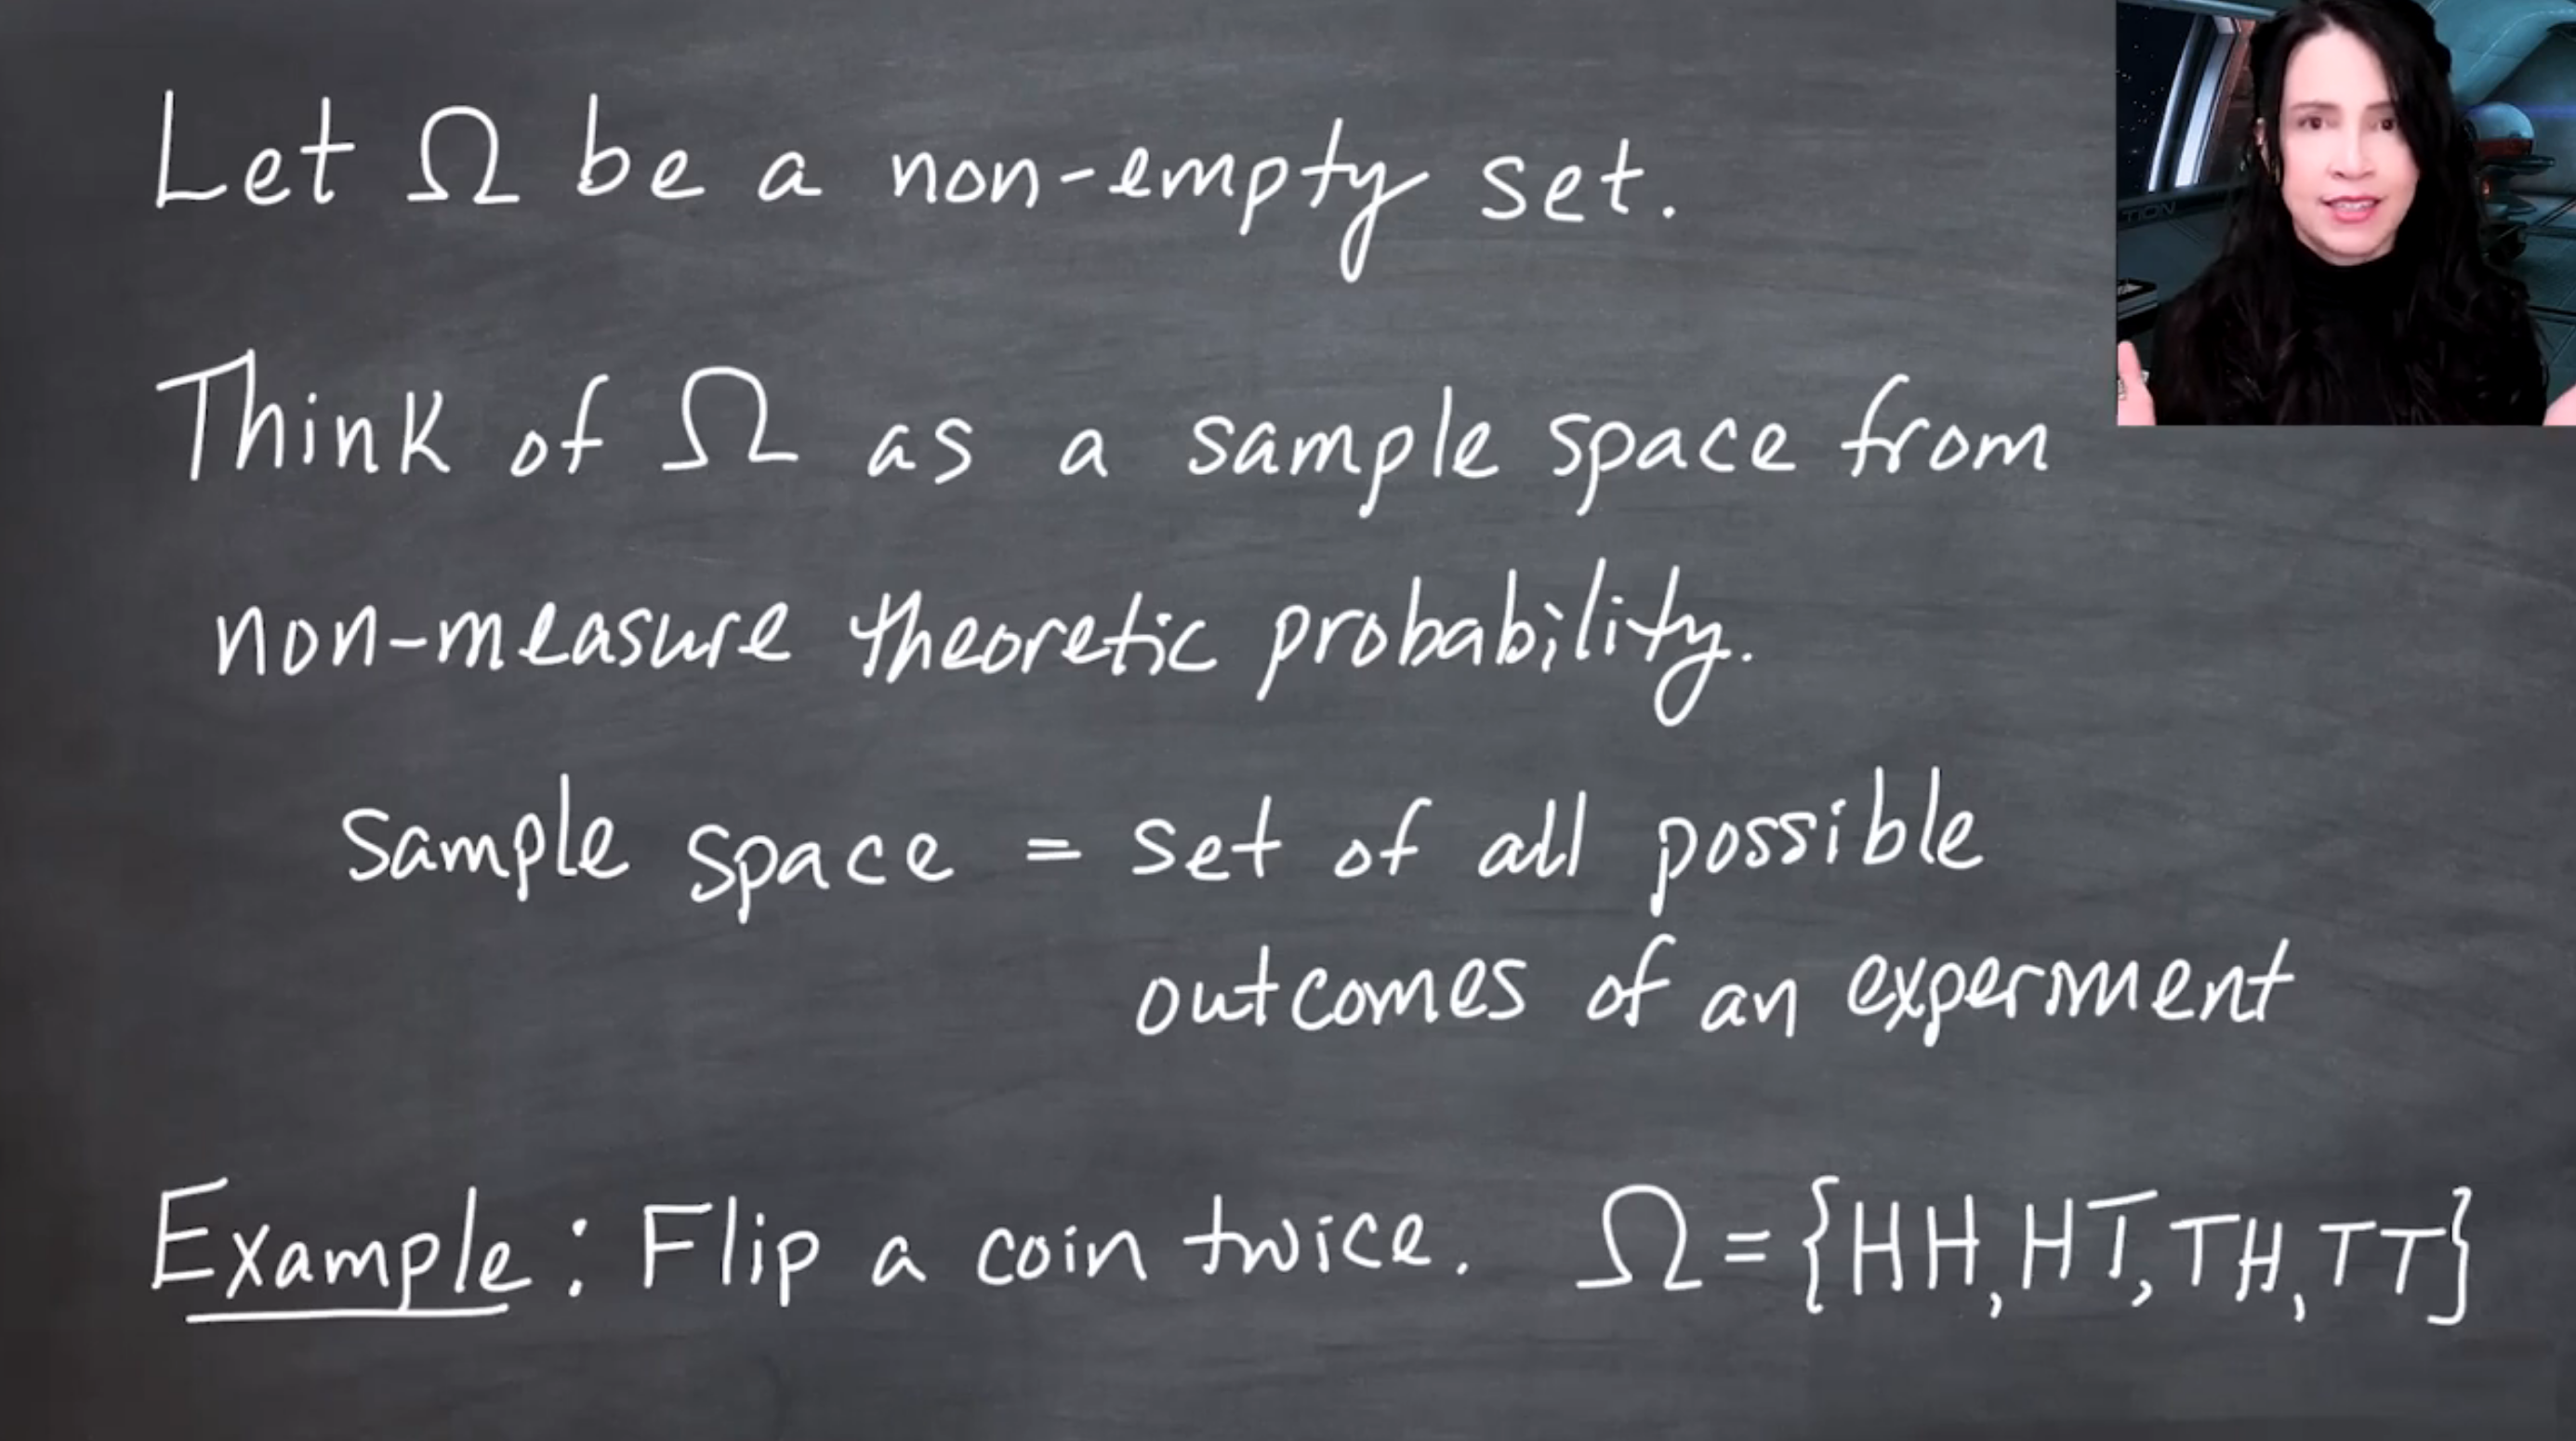 Let Ω be a non-empty set.
Think of Ω as a sample space from
non-measure theoretic probability.
sample space = set of all possible
outcomes of an experiment
Example: Flip a coin twice. Ω = {HH, HT, TH, TT}
TION